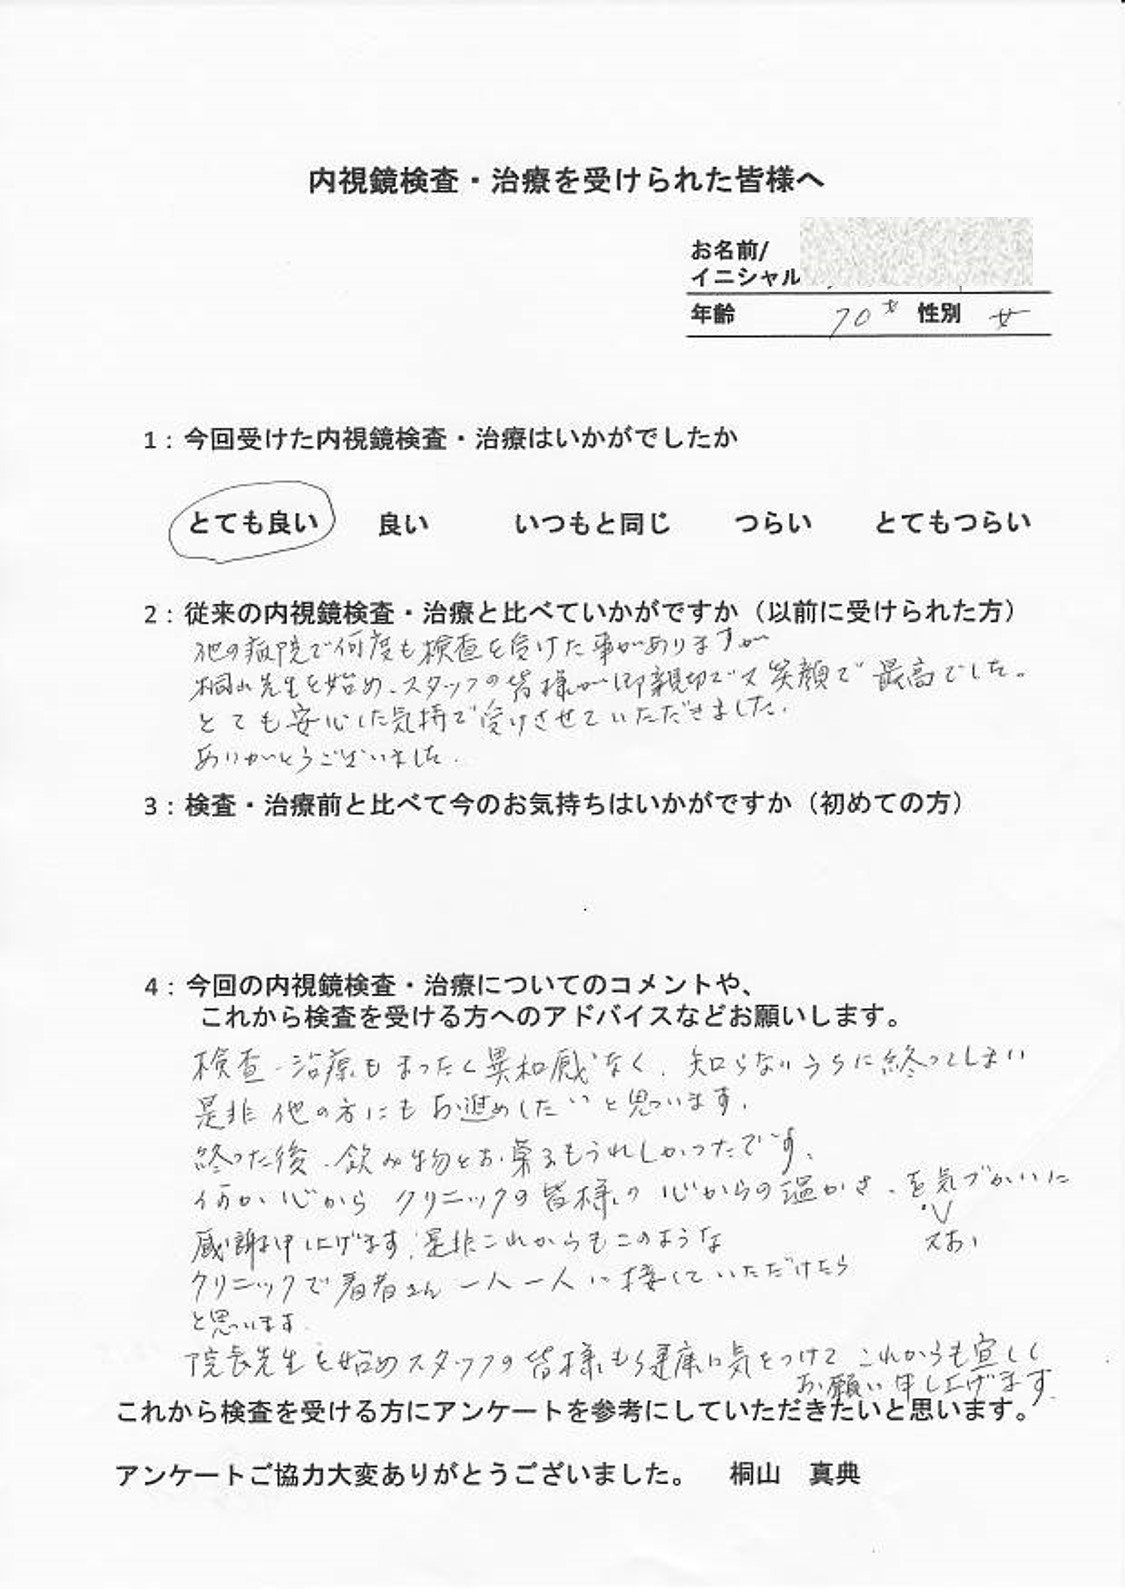 内視鏡検査・治療を受けられた皆様へ
お名前/
イニシャル
年齢 70才 性別 女
1：今回受けた内視鏡検査・治療はいかがでしたか
とても良い 良い いつもと同じ つらい とてもつらい
2：従来の内視鏡検査・治療と比べていかがですか（以前に受けられた方）
他の病院で何度も検査を受けた事がありますが
桐山先生を始め、スタッフの皆様が御親切で又笑顔で最高でした。
とても安心した気持で受けさせていただきました。
ありがとうございました。
3：検査・治療前と比べて今のお気持ちはいかがですか（初めての方）
4：今回の内視鏡検査・治療についてのコメントや、
これから検査を受ける方へのアドバイスなどお願いします。
検査・治療もまったく異和感なく、知らないうちに終ってしまい
是非他の方にもお進めしたいと思います。
終った後、飲み物とお菓子もうれしかったです。
何か心から クリニックの皆様の心からの温かさ、を気づかいに
感謝申し上げます。是非これからもこのような
クリニックで患者さん一人一人に接していただけたら
と思います。
院長先生を始めスタッフの皆様も健康に気をつけて これからも宜しく
お願い申し上げます。
これから検査を受ける方にアンケートを参考にしていただきたいと思います。
アンケートご協力大変ありがとうございました。 桐山 真典